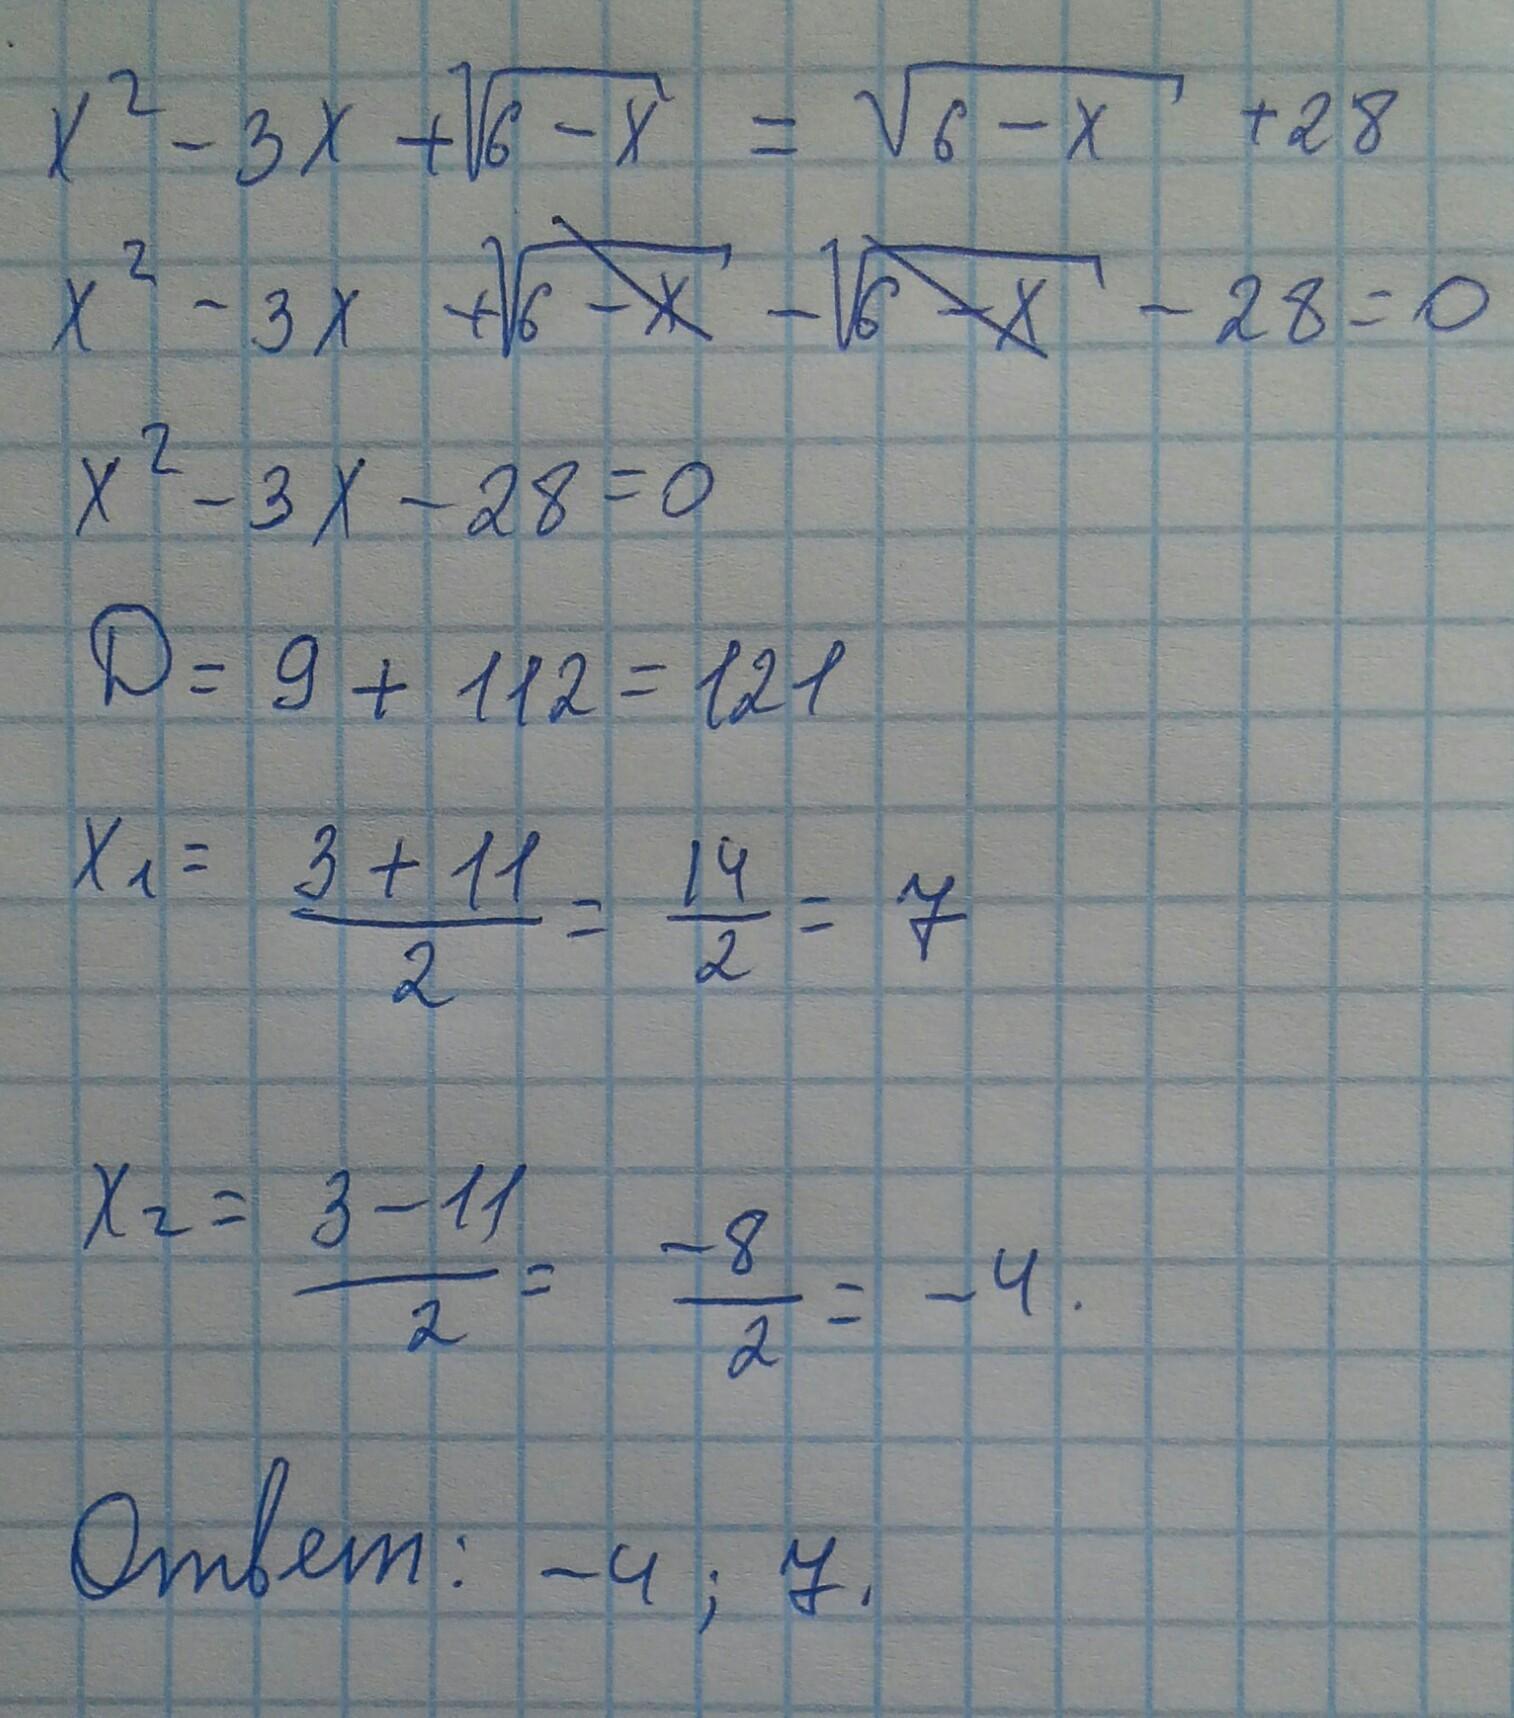 x² - 3x + √6 - x = √6 - x + 28
x² - 3x + √6 - x - √6 - x - 28 = 0
x² - 3x - 28 = 0
D = 9 + 112 = 121
x₁ = (3 + 11)/2 = 14/2 = 7
x₂ = (3 - 11)/2 = -8/2 = -4.
Ответ: -4; 7.